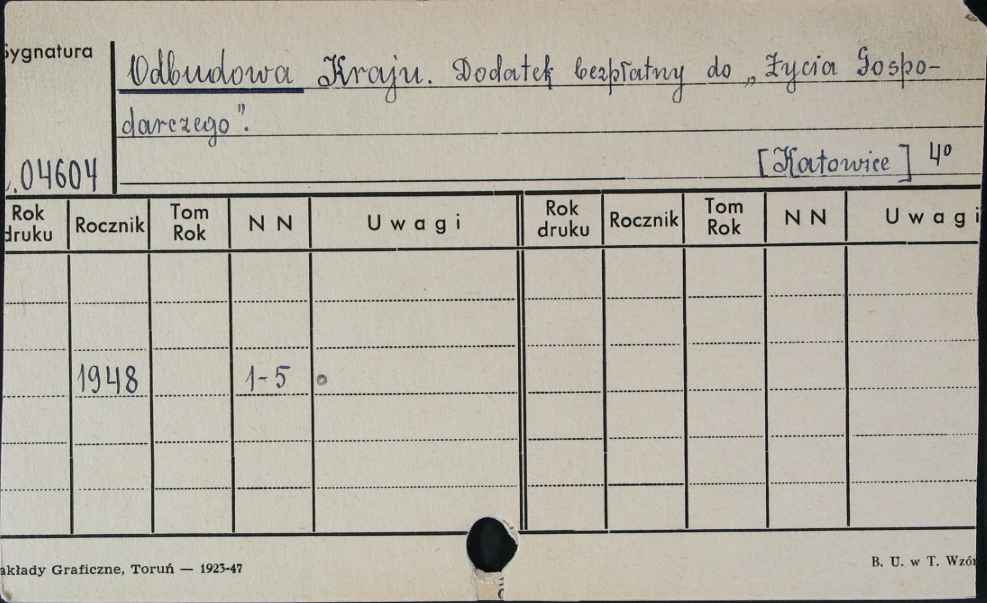 Sygnatura
Odbudowa Kraju. Dodatek bezpłatny do „Życia Gospo-
darczego".
.04604
[Katowice] 4º
Rok druku Rocznik Tom Rok N N Uwagi Rok druku Rocznik Tom Rok N N Uwagi
1948 1-5
akłady Graficzne, Toruń — 1923-47
B. U. w T. Wzór